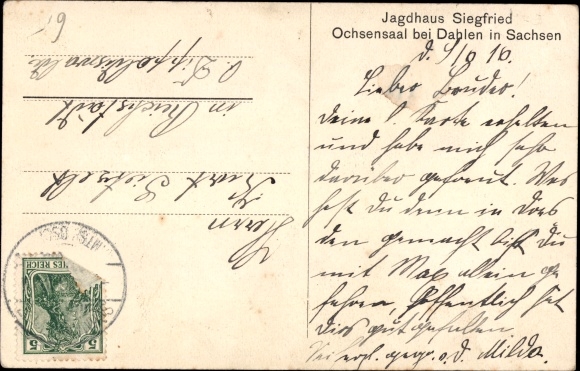 Jagdhaus Siegfried
Ochsensaal bei Dahlen in Sachsen
d. 9/6 10.
Lieber Bruder!
Deine l. Karte erhalten
und habe mich sehr
darüber gefreut. Was
hast Du denn in Dres
den gemacht bist Du
mit Max allein ge
fahren, Hoffentlich hat
Dirs gut gefallen
Sei gegr. v. d. Milda.
Herrn
Kurt
in Reichstädt
b. Dippoldiswalde
6,-
5